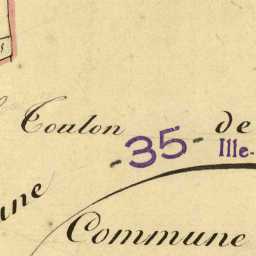 Toulon de
-35-
Ille-
Commune